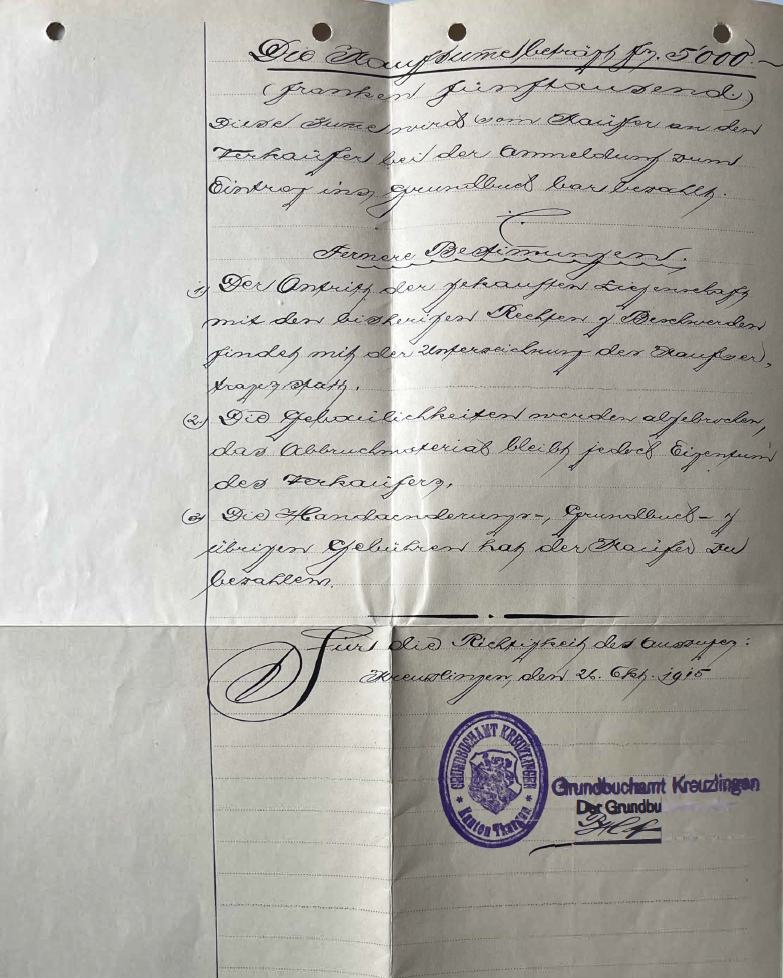 Die Kaufsum̅e beträgt Fr. 5000.–
(Franken fünftausend.)
Diese Sum̅e wird vom Käufer an den
Verkäufer bei der Anmeldung zum
Eintrag ins Grundbuch bar bezahlt.
Fernere Bestim̅ungen.
1) Der Antritt der gekauften Liegenschaft
mit den bisherigen Rechten & Beschwerden
findet mit der Unterzeichnung des Kaufver-
trages statt.
2) Die Gebäulichkeiten werden abgebrochen,
das Abbruchmaterial bleibt jedoch Eigentum
des Verkäufers.
3) Die Handaenderungs-, Grundbuch- &
übrigen Gebühren hat der Käufer zu
bezahlen.
Für die Richtigkeit des Auszuges:
Kreuzlingen, den 26. Okt. 1915
GRUNDBUCHAMT KREUZLINGEN
* Kanton Thurgau *
Grundbuchamt Kreuzlingen
Der Grundbu